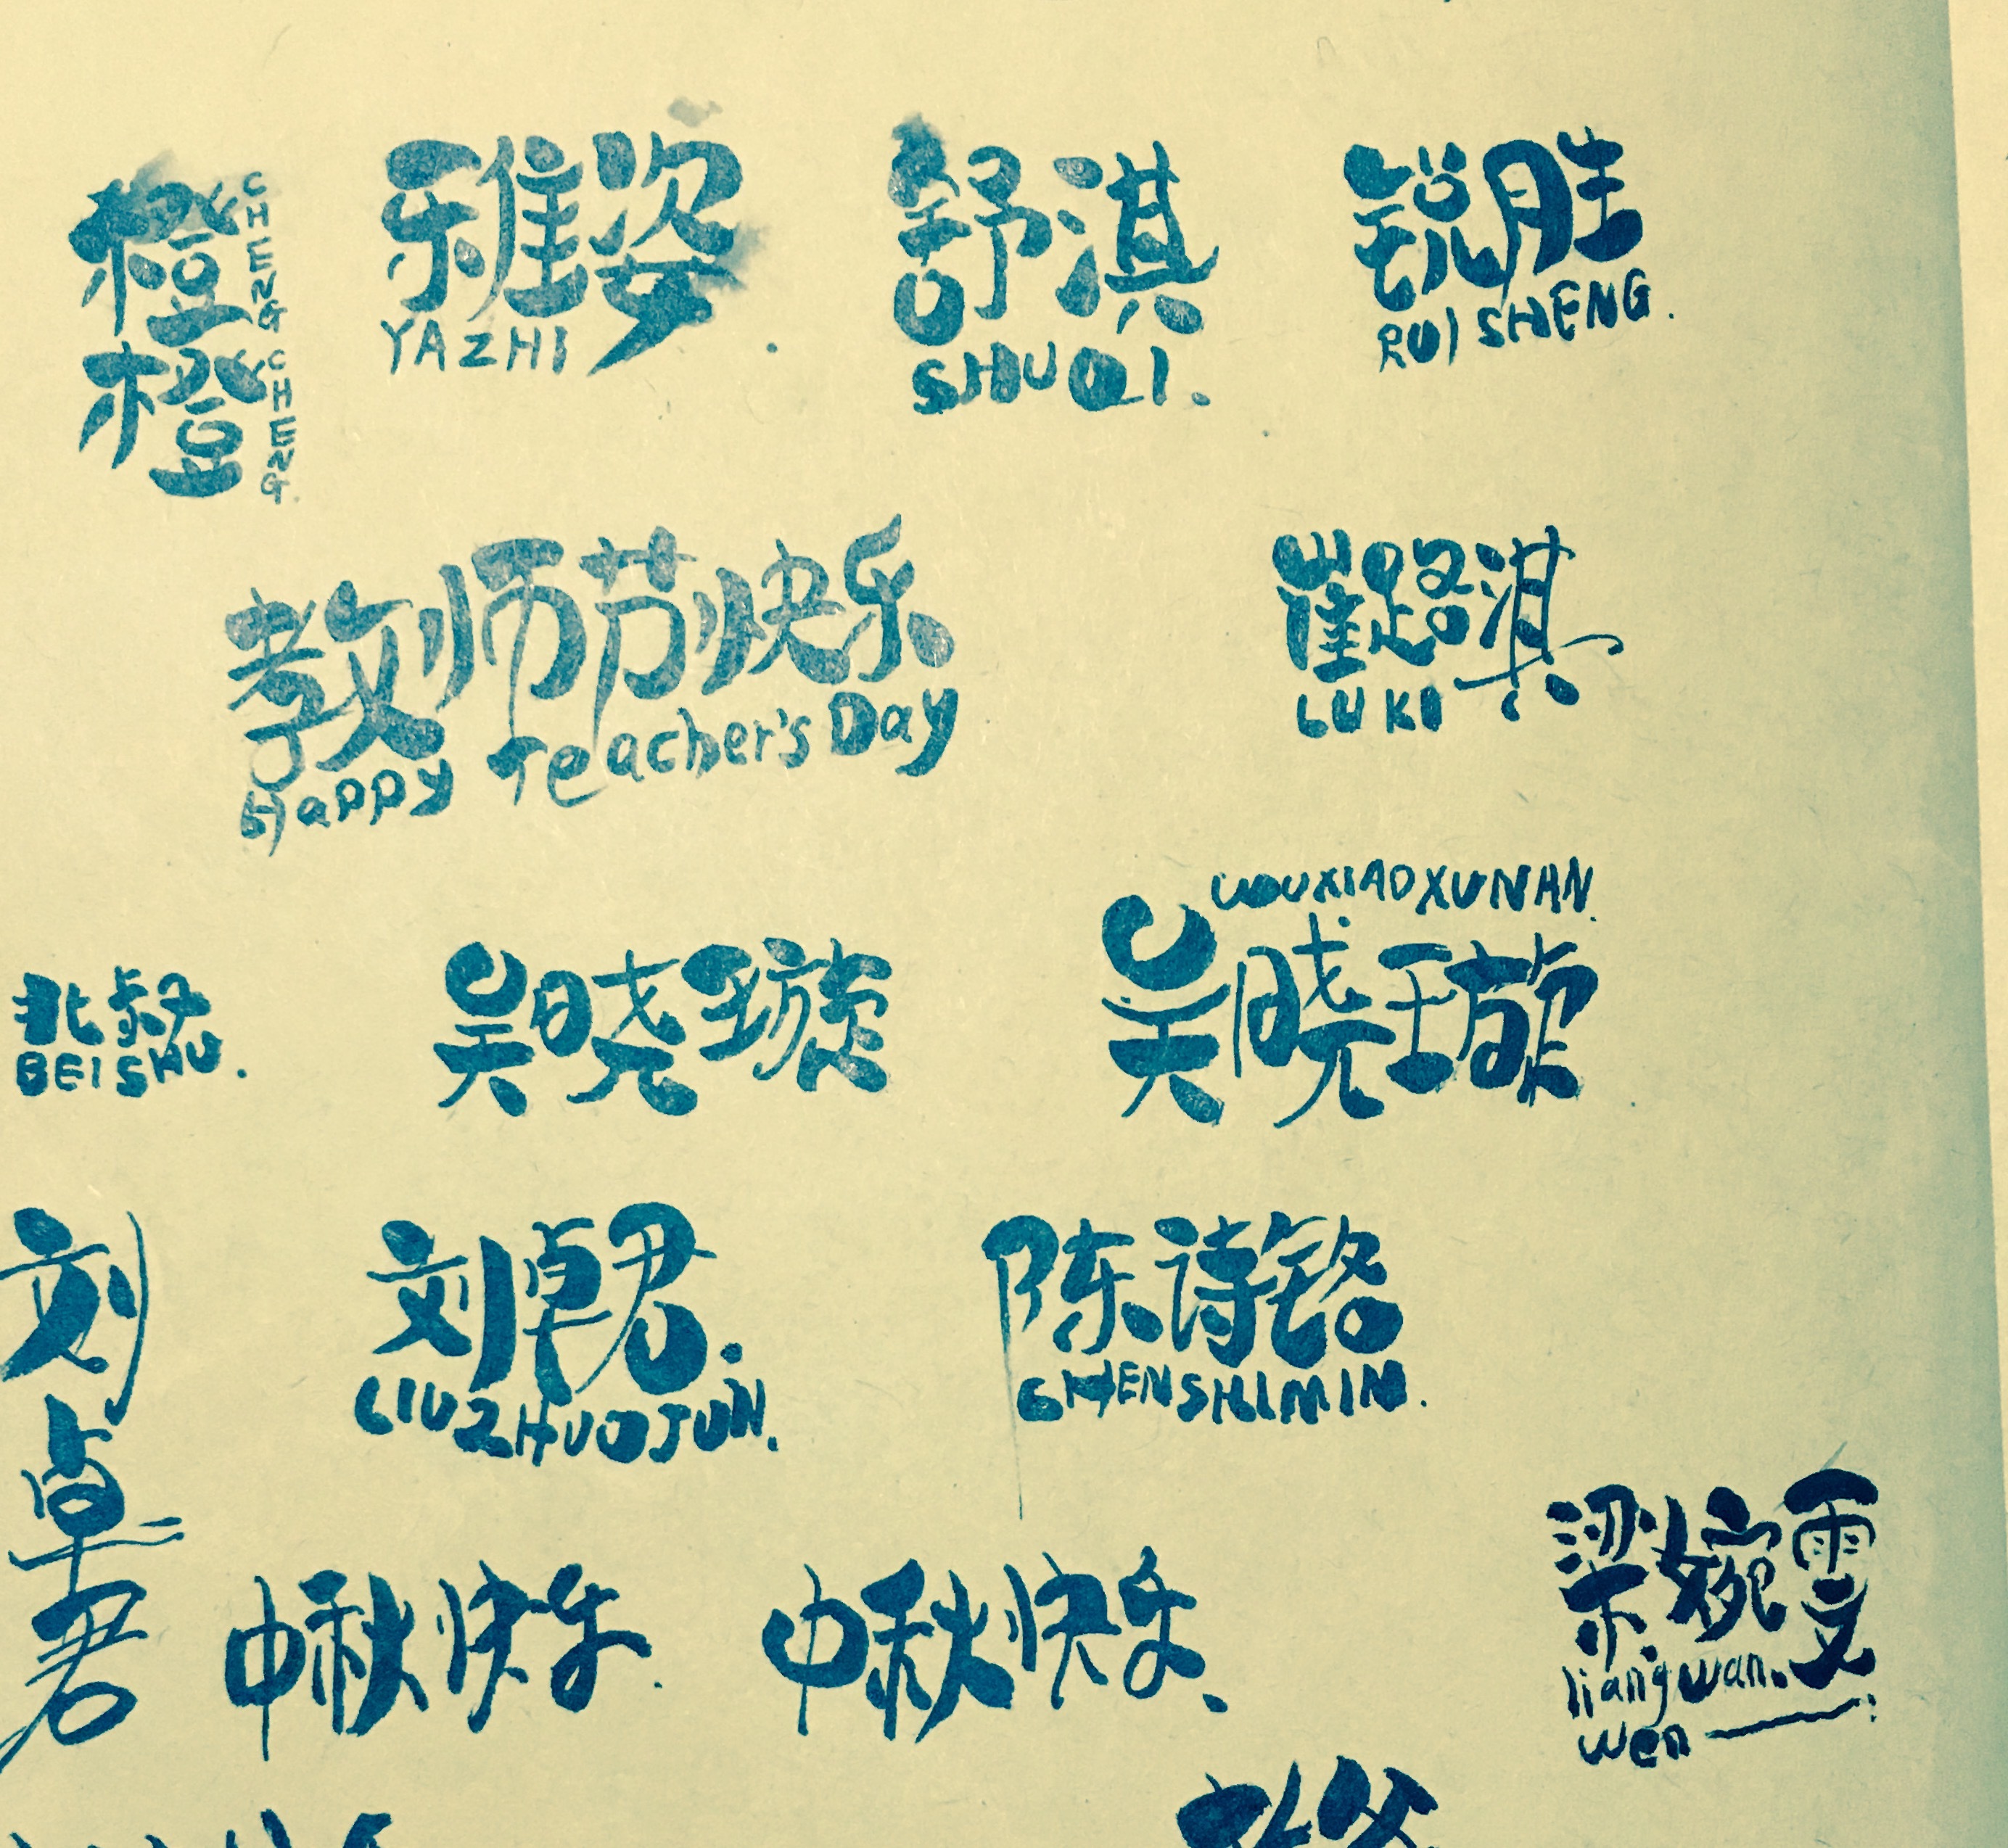 橙橙
CHENG CHENG.
雅姿
YAZHI
舒淇
SHUQI.
锐胜
RUISHENG.
教师节快乐
Happy Teacher's Day
崔璐淇
LUKI
北叔
BEISHU.
吴晓璇
WOUXIAOXUNAN.
吴晓璇
刘卓君
刘卓君.
LIUZHUOJUN.
陈诗铭
CHENSHIMIN.
中秋快乐.
中秋快乐.
梁婉雯
liangwan.
wen